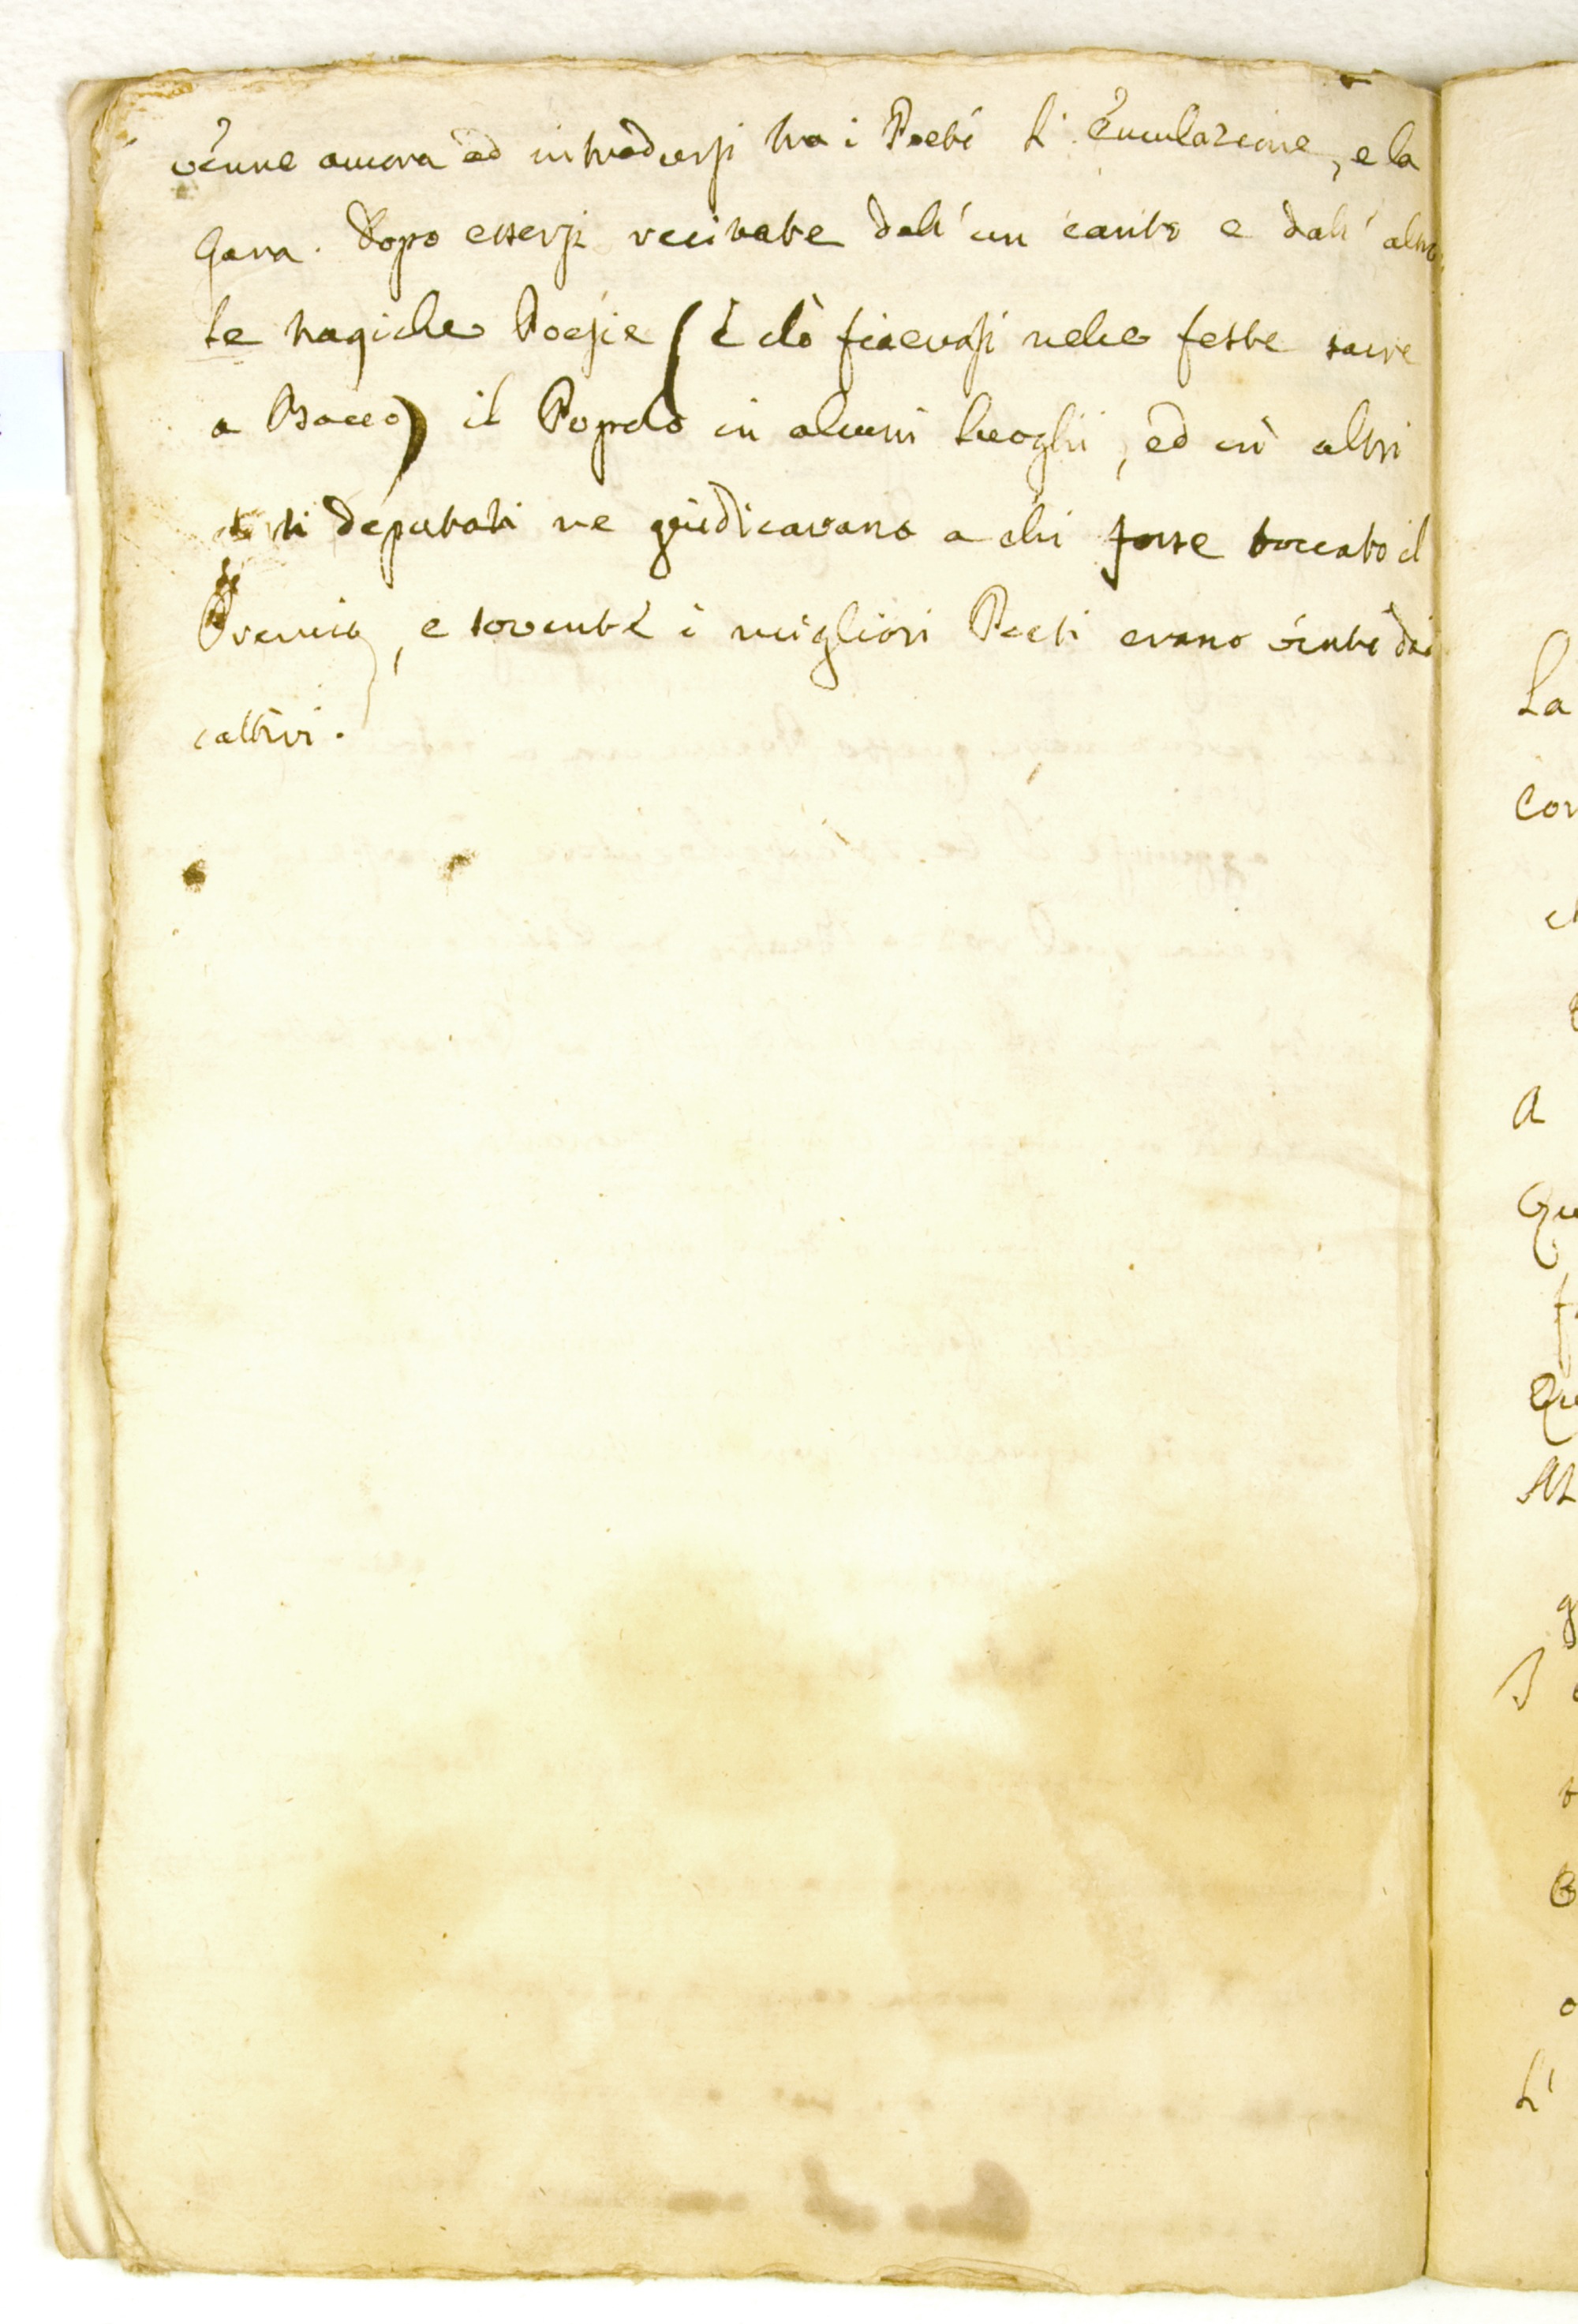 venne ancora ad introdursi tra i Poeti L'Emulazione, e la
Gara. Dopo essersi recitate dall'un canto e dall'altro
le tragiche Poesie (e ciò facevasi nelle feste sacre
a Bacco) il Popolo in alcuni luoghi, ed in altri
deputati ne giudicavano a chi fosse toccato il
Premio, e sovente i migliori Poeti erano vinti dai
cattivi.
La
A
L'